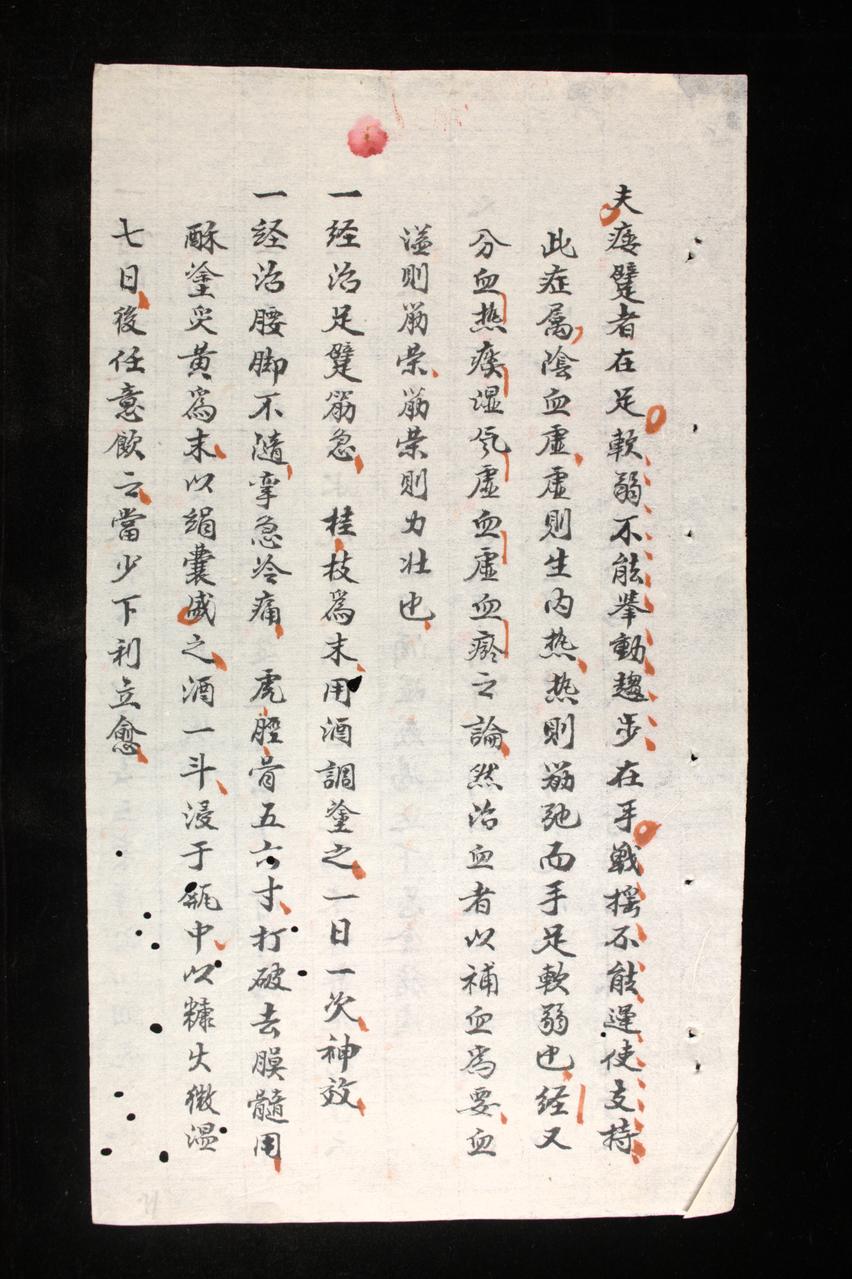 夫痿躄者在足軟弱不能举動趨步在手戰摇不能運使支持
此症属陰血虚虚則生内热热則筋弛而手足軟弱也经又
分血热痰湿氣虚血虚血瘀之論然治血者以補血為要血
溢則筋荣筋荣則力壮也
一经治足躄筋急 桂枝為末用酒調塗之一日一次神效
一経治腰脚不隨挛急冷痛 虎脛骨五六寸打破去膜髓用
酥塗炙黄為末以絹囊盛之酒一斗浸于瓶中以糠火微温
七日後任意飲之當少下利立愈